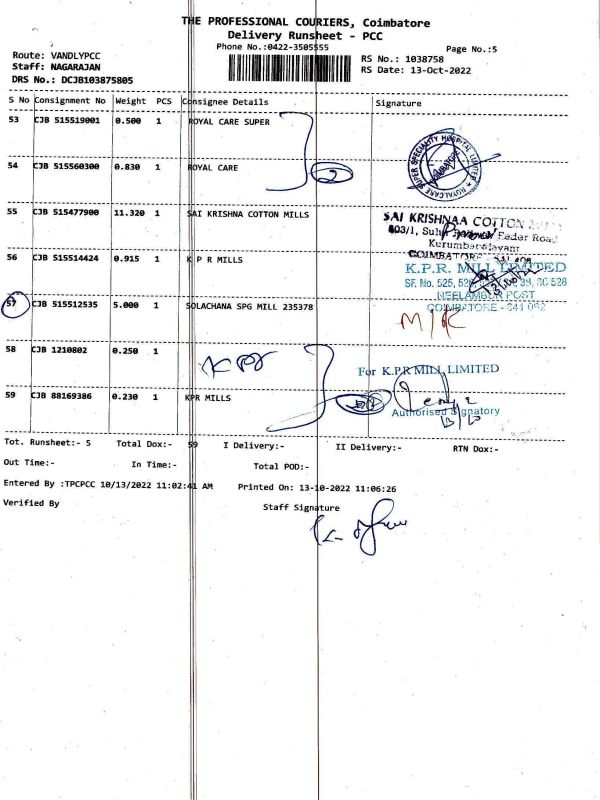 THE PROFESSIONAL COURIERS, Coimbatore
Delivery Runsheet - PCC
Phone No.:0422-3505555
Page No.:5
Route: VANDLYPCC
Staff: NAGARAJAN
DRS No.: DCJB103875805
RS No.: 1038758
RS Date: 13-Oct-2022
S No Consignment No Weight PCS Consignee Details Signature
53 CJB 515519001 0.500 1 ROYAL CARE SUPER
54 CJB 515560300 0.830 1 ROYAL CARE
2
55 CJB 515477900 11.320 1 SAI KRISHNA COTTON MILLS
SAI KRISHNAA COTTON
Feder Road
COIMBATORE
56 CJB 515514424 0.915 1 K P R MILLS
K.P.R. MILL LIMITED
NEELAMBUR POST
COIMBATORE - 641 062
57 CJB 515512535 5.000 1 SOLACHANA SPG MILL 235378
M/R
58 CJB 1210802 0.250 1
KPR
For K.P.R MILL LIMITED
59 CJB 88169386 0.230 1 KPR MILLS
Authorised Signatory
Tot. Runsheet:- 5 Total Dox:- 59 I Delivery:- II Delivery:- RTN Dox:-
Out Time:- In Time:- Total POD:-
Entered By :TPCPCC 10/13/2022 11:02:41 AM Printed On: 13-10-2022 11:06:26
Verified By Staff Signature